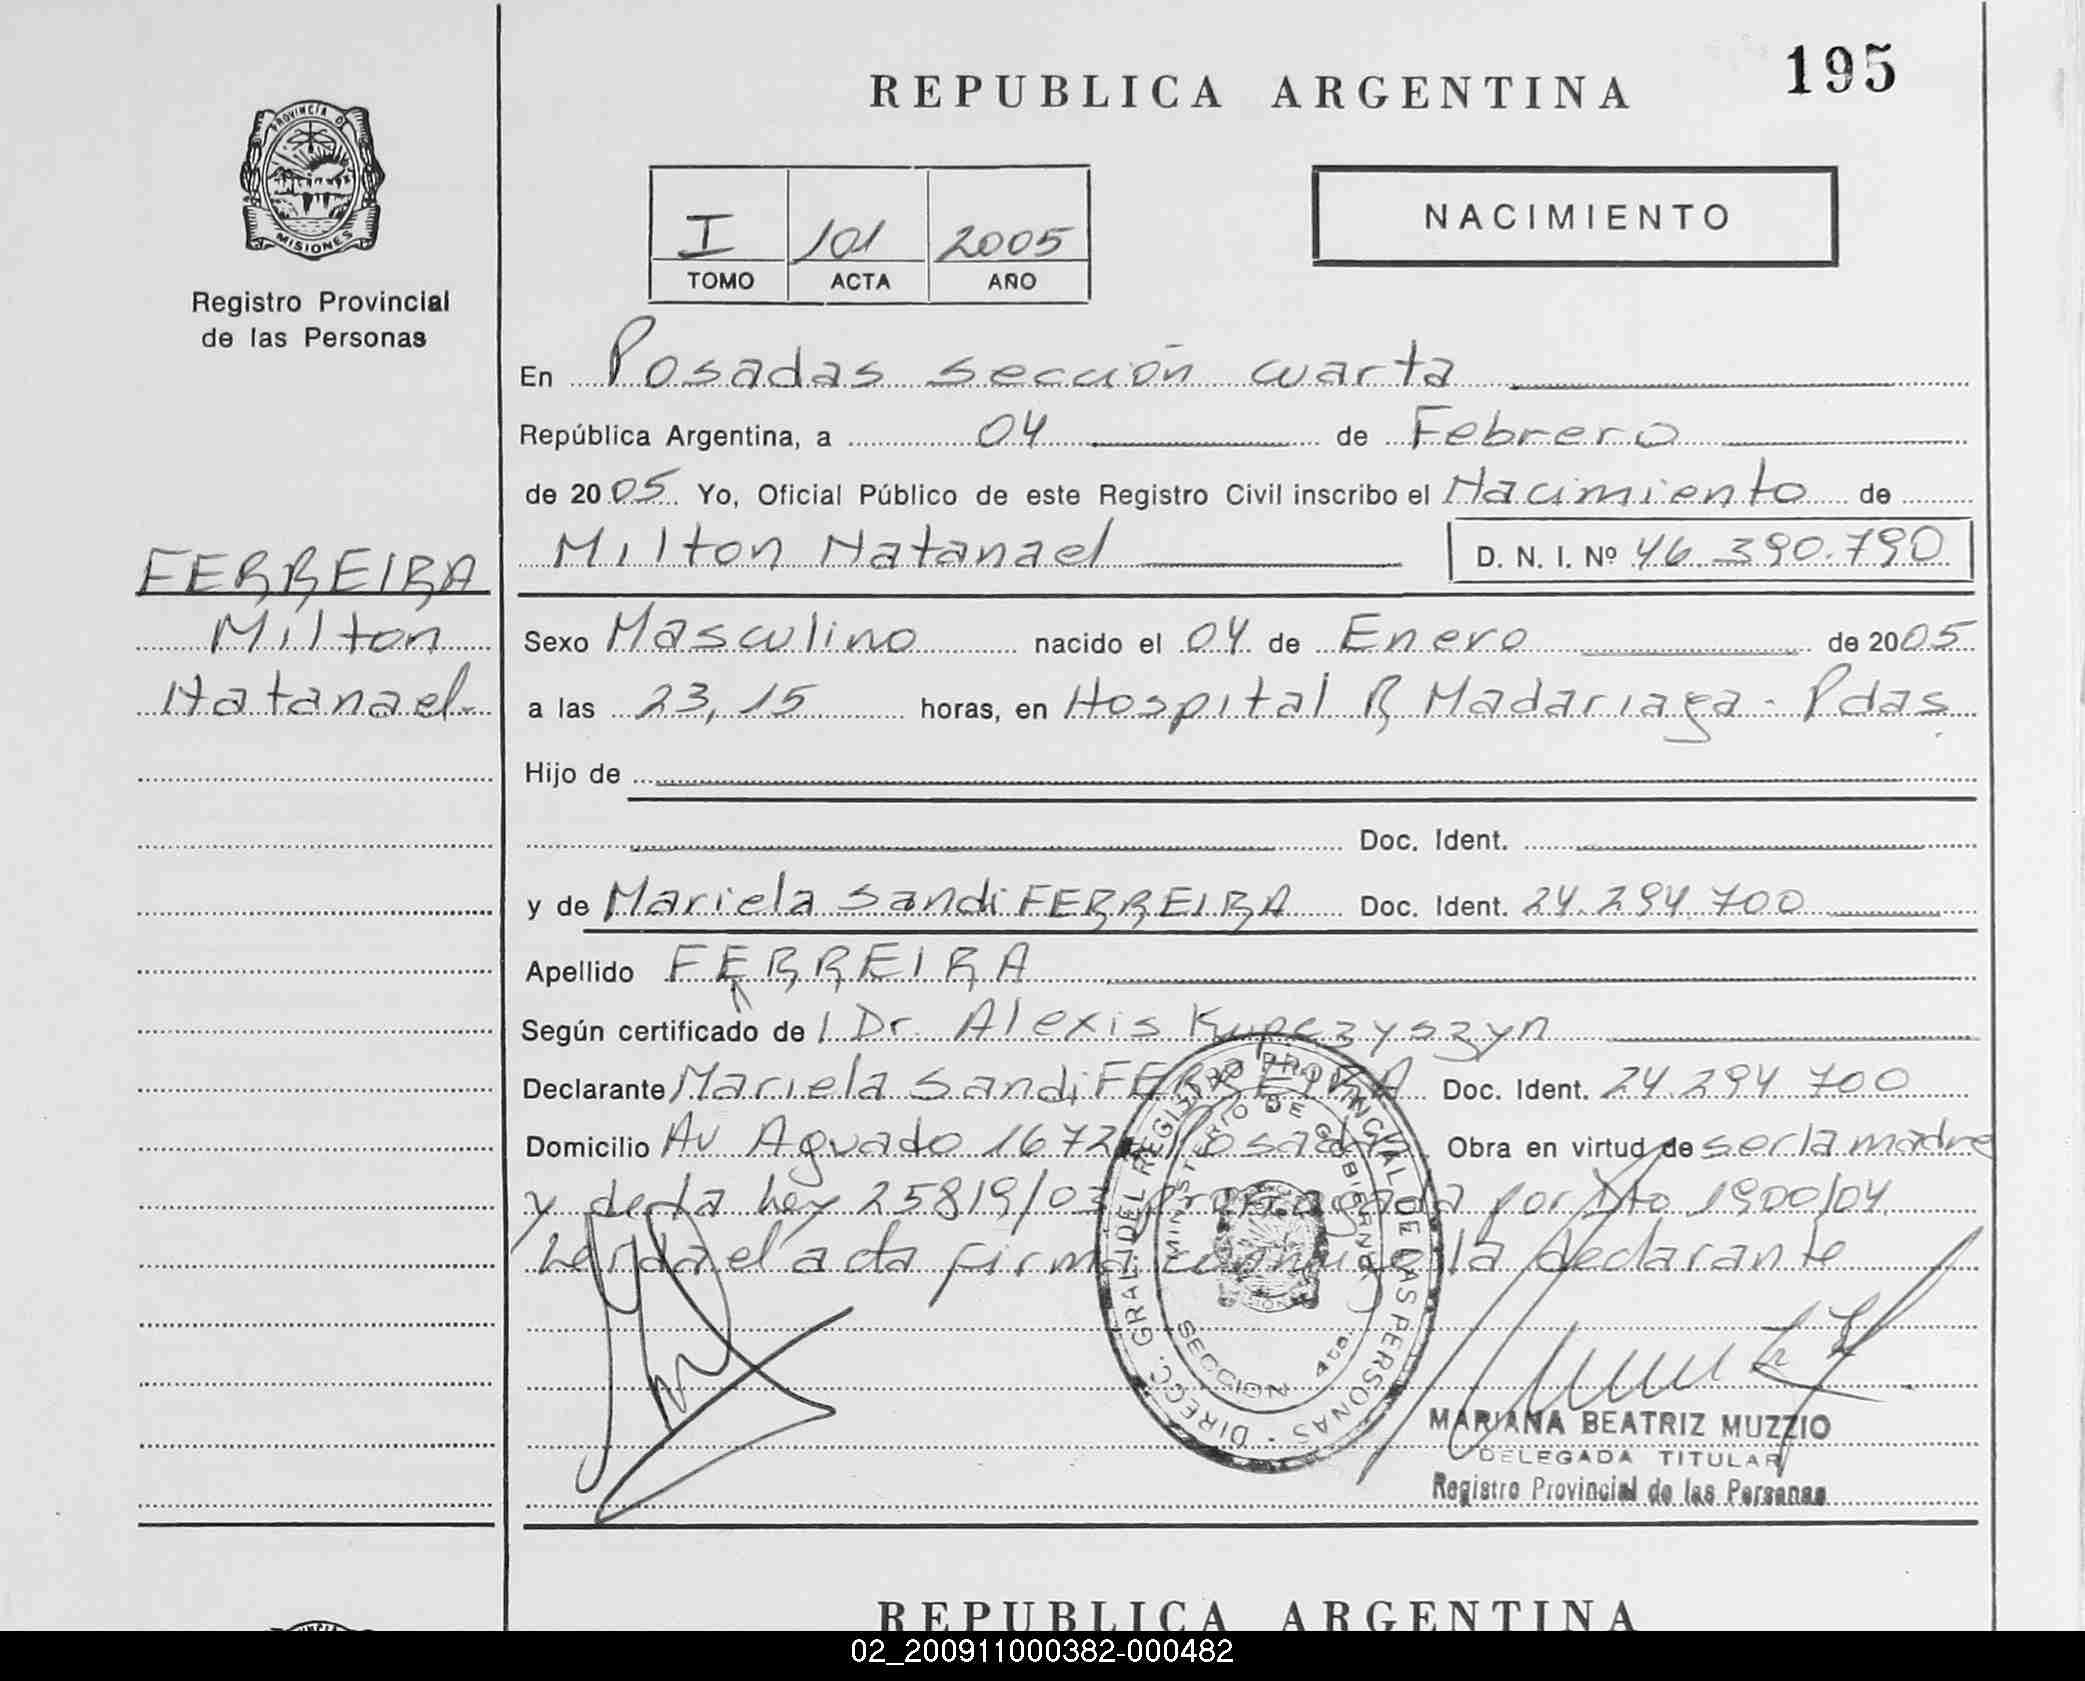 195
REPUBLICA ARGENTINA
PROVINCIA DE
MISIONES
Registro Provincial
de las Personas
NACIMIENTO
I 101 2005
TOMO ACTA AÑO
En Posadas sección cuarta
República Argentina, a 04 de Febrero
de 2005 Yo, Oficial Público de este Registro Civil inscribo el Nacimiento de
Milton Natanael D. N. I. Nº 46.390.790
FERREIRA
Milton
Natanael
Sexo Masculino nacido el 04 de Enero de 2005
a las 23,15 horas, en Hospital R Madariaga - Pdas
Hijo de
Doc. Ident.
y de Mariela Sandi FERREIRA Doc. Ident. 24.294.700
Apellido FERREIRA
Según certificado de Dr. Alexis Kupczyszyn
Declarante Mariela Sandi FERREIRA Doc. Ident. 24.294.700
Domicilio Av Aguado 1672 Posadas Obra en virtud de ser la madre
y de la Ley 25819/03 prorrogada por Dto 1900/04.
Leída el acta firma conmigo la declarante
DIRECC. GRAL. DEL REGISTRO PROVINCIAL DE LAS PERSONAS
MINISTERIO DE GOBIERNO
SECCION 4ta.
MARIANA BEATRIZ MUZZIO
DELEGADA TITULAR
Registro Provincial de las Personas
REPUBLICA ARGENTINA
02_200911000382-000482